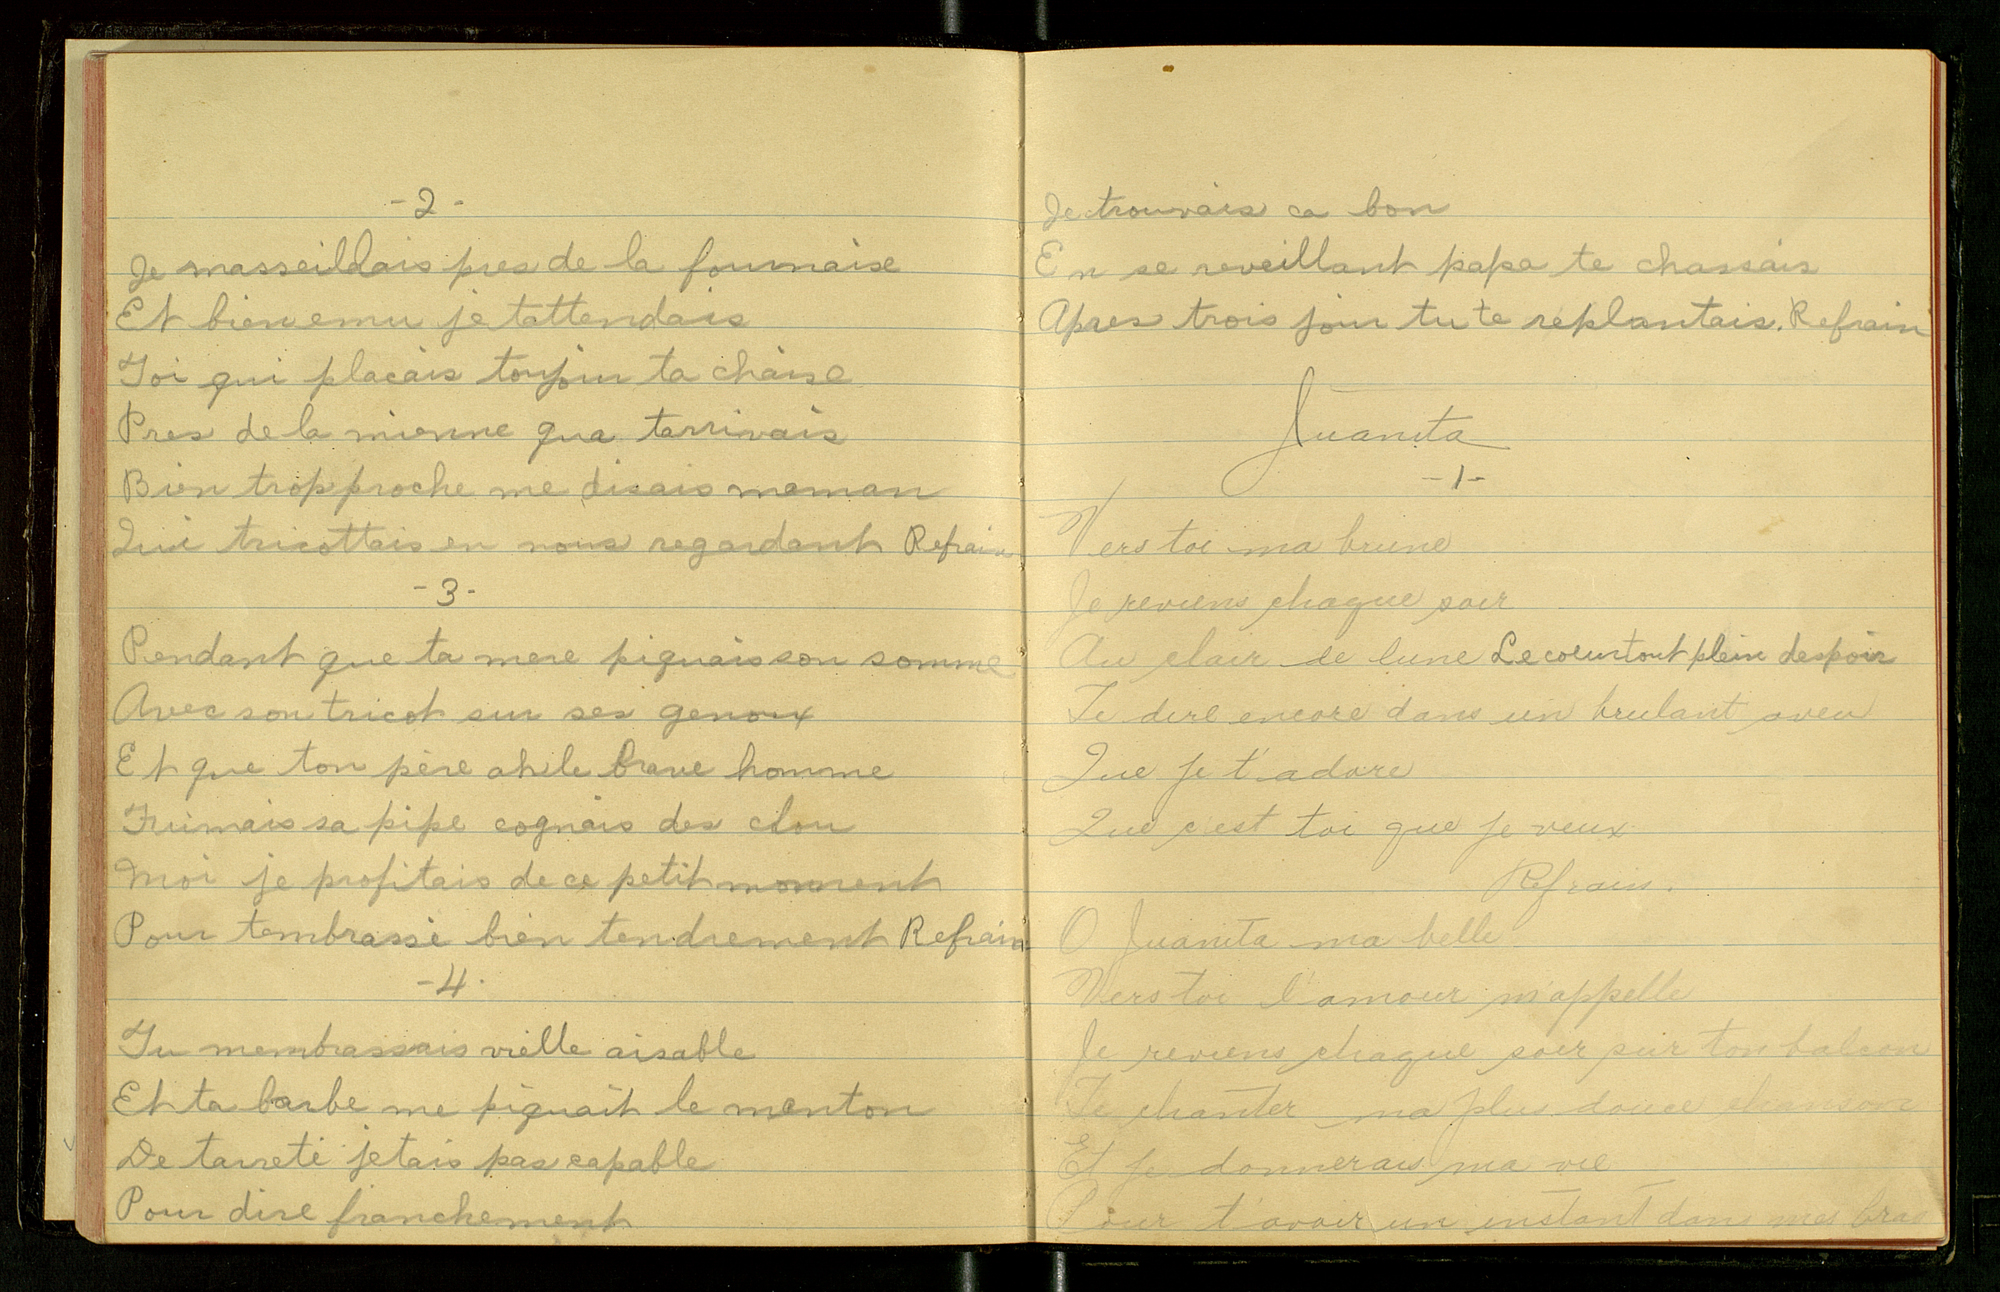 -2-
Je masseildais pres de la fournaise
Et bien emu je tattendais
Toi qui placais toujour ta chaise
Pres de la mienne qua tarrivais
Bien trop proche me disais maman
Qui tricottais en nous regardant Refrain
-3-
Pendant que ta mere piquais son somme
Avec son tricot sur ses genoux
Et que ton père ah le brave homme
Fumais sa pipe cognais des clou
Moi je profitais de ce petit moment
Pour tembrassé bien tendrement Refrain
-4-
Tu membrassais vielle aisable
Et ta barbe me piquait le menton
De tarreté jetais pas capable
Pour dire franchement
Je trouvais ca bon
En se reveillant papa te chassais
Apres trois jour tu te replantais. Refrain
Juanita
-1-
Vers toi ma brune
Je reviens chaque soir
Au clair de lune Le coeur tout plein despoir
Te dire encore dans un brulant aveu
Que je t'adore
Que c'est toi que je veux
Refrain.
O Juanita ma belle
Vers toi l'amour m'appelle
Je reviens chaque soir sur ton balcon
Te chanter ma plus douce chanson
Et je donnerais ma vie
Pour t'avoir un instant dans mes bras